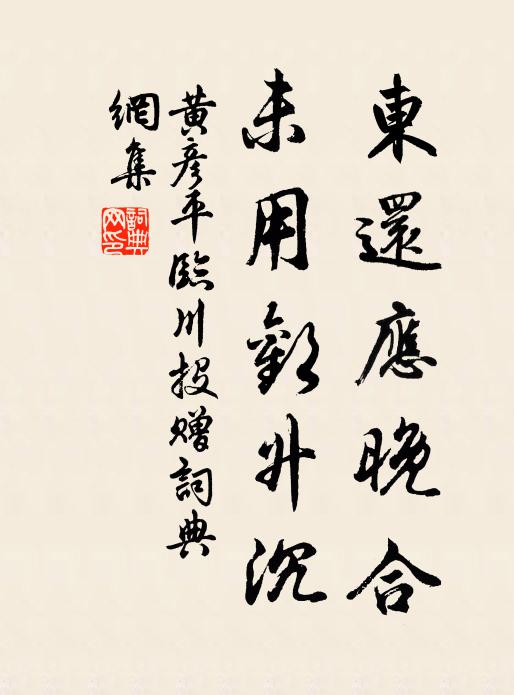 東還應晚合
未用歎升沉
黃彥平臨川投贈詞典
網集
詞典網印